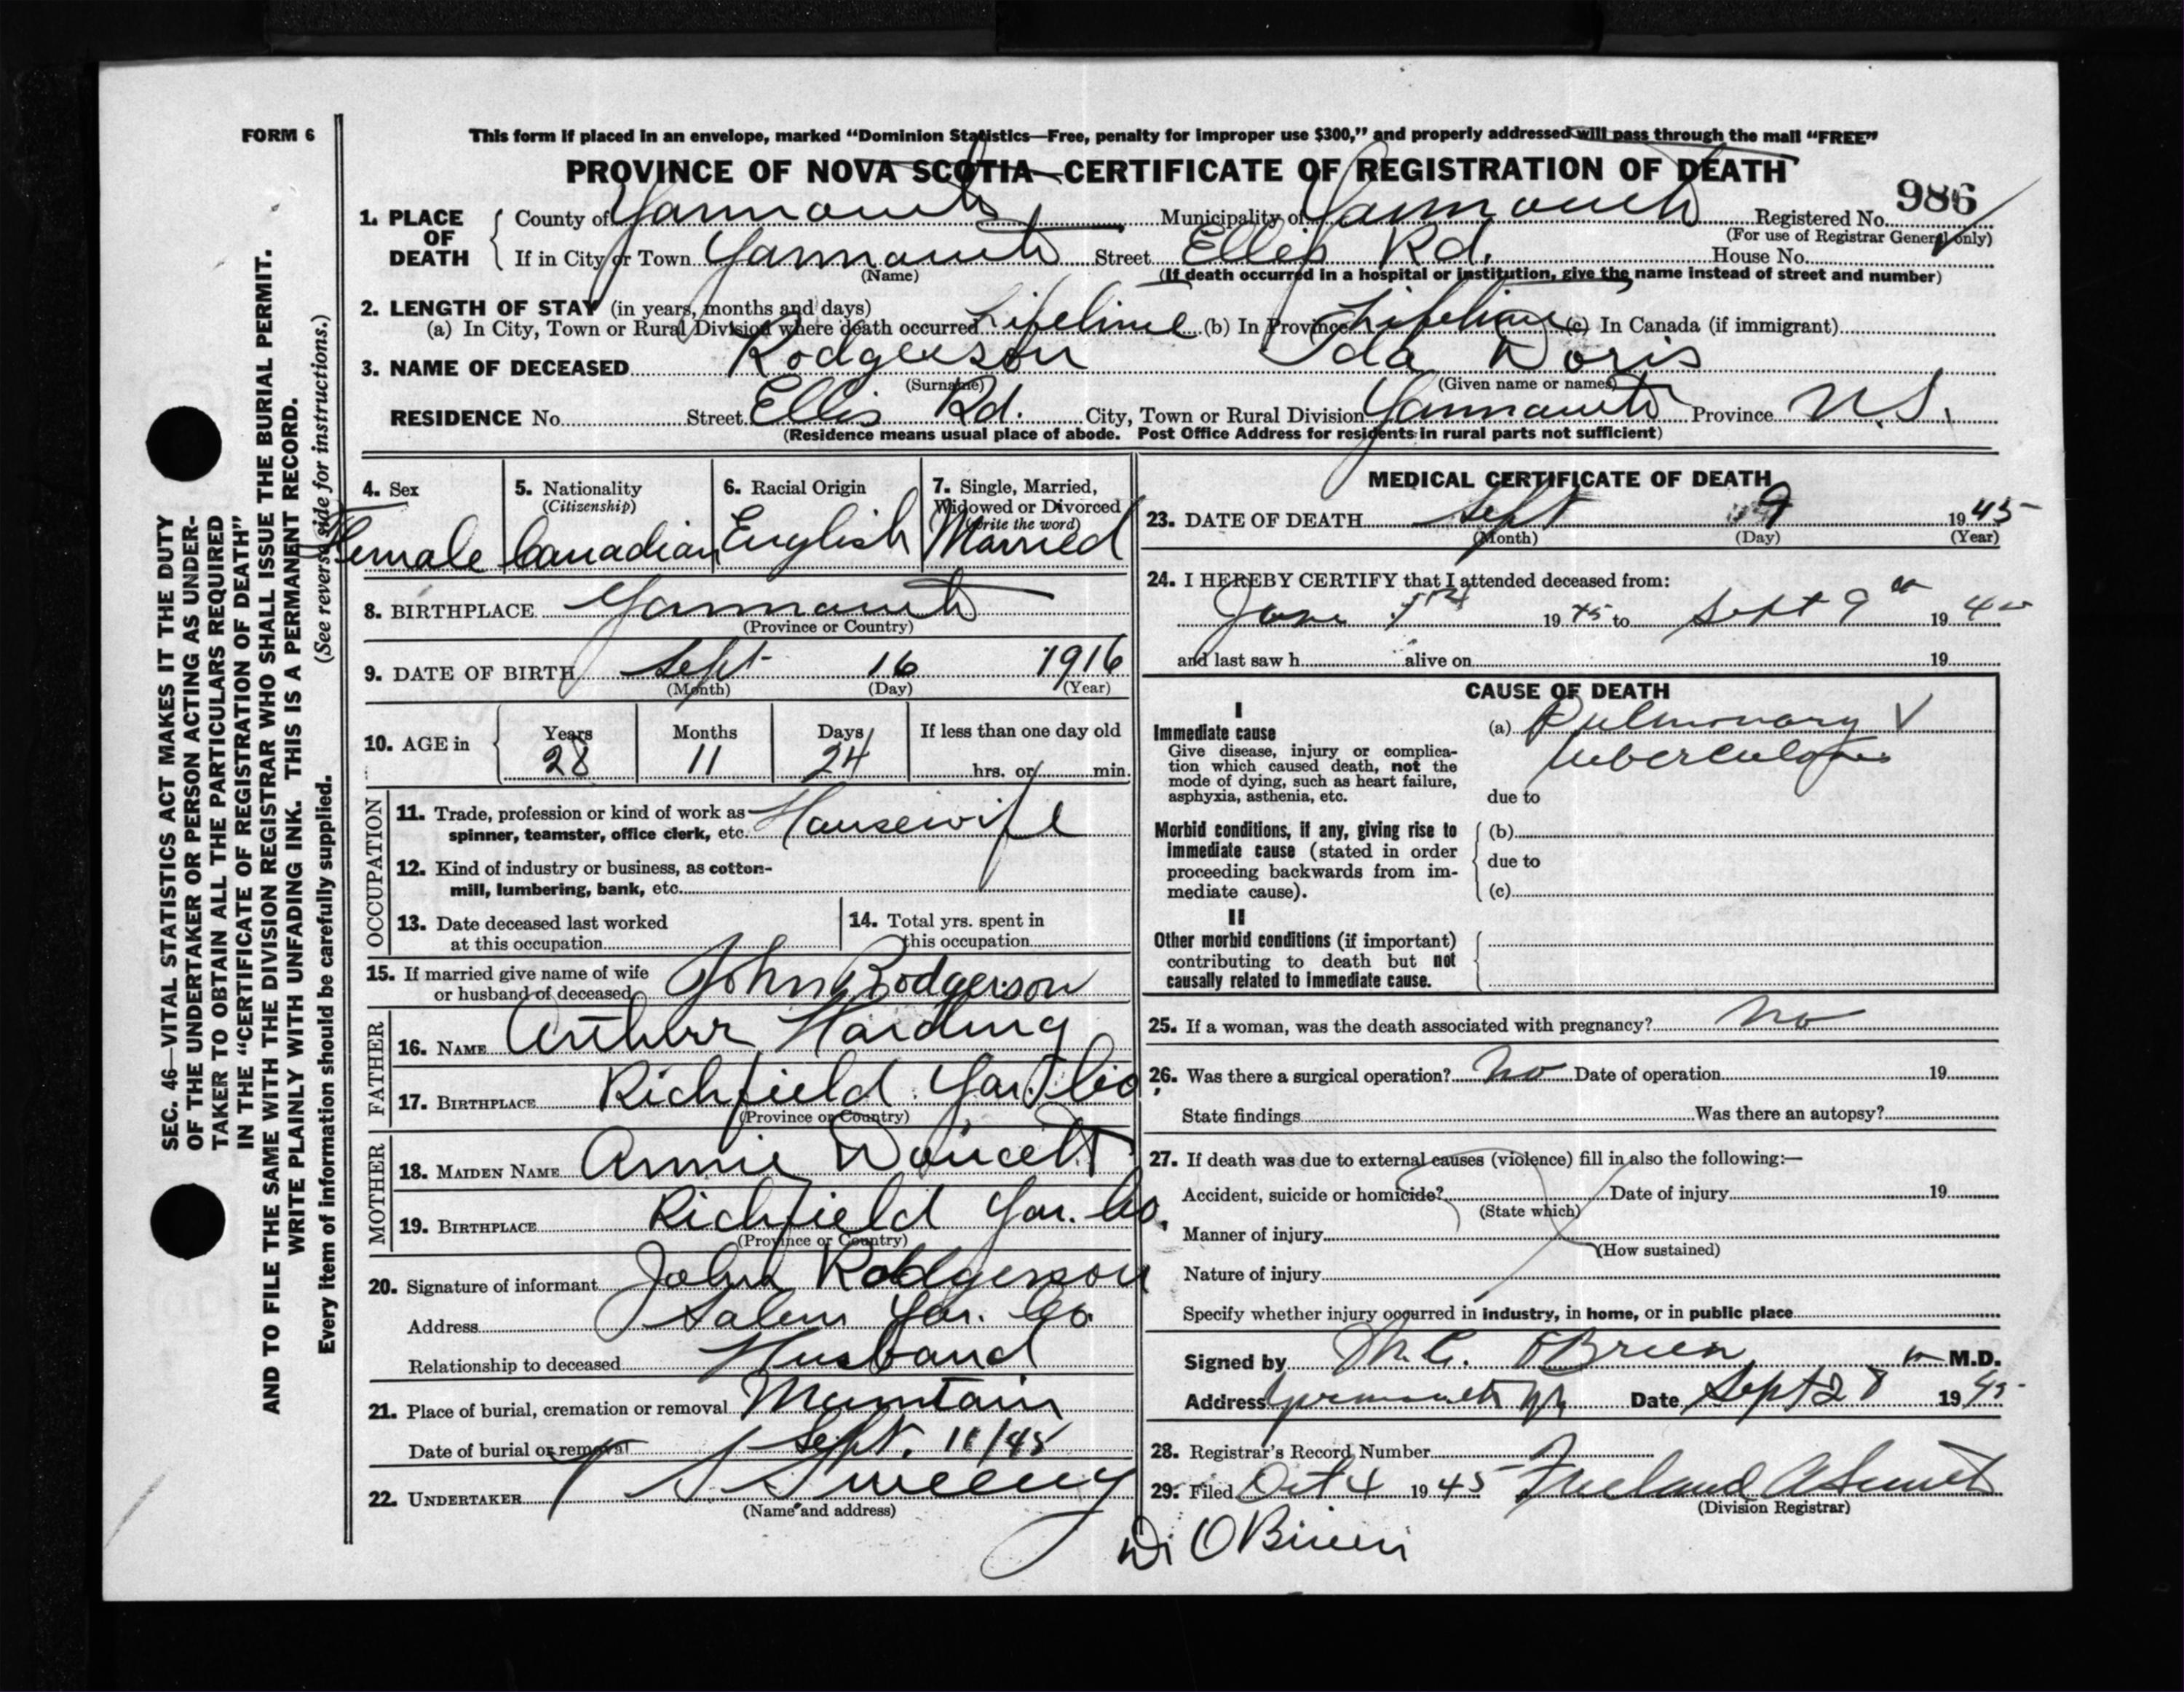 FORM 6
This form if placed in an envelope, marked "Dominion Statistics—Free, penalty for improper use $300," and properly addressed will pass through the mail "FREE"
PROVINCE OF NOVA SCOTIA—CERTIFICATE OF REGISTRATION OF DEATH
986
1. PLACE OF DEATH County of Yarmouth Municipality of Yarmouth Registered No.
(For use of Registrar General only)
If in City or Town Yarmouth Street Ellis Rd. House No.
(Name) (If death occurred in a hospital or institution, give the name instead of street and number)
2. LENGTH OF STAY (in years, months and days)
(a) In City, Town or Rural Division where death occurred Lifetime (b) In Province Lifetime (c) In Canada (if immigrant)
3. NAME OF DECEASED Rodgerson Ida Doris
(Surname) (Given name or names)
RESIDENCE No. Street Ellis Rd. City, Town or Rural Division Yarmouth Province N.S.
(Residence means usual place of abode. Post Office Address for residents in rural parts not sufficient)
4. Sex
Female
5. Nationality
(Citizenship)
Canadian
6. Racial Origin
English
7. Single, Married,
Widowed or Divorced
(write the word)
Married
8. BIRTHPLACE Yarmouth
(Province or Country)
9. DATE OF BIRTH Sept 16 1916
(Month) (Day) (Year)
10. AGE in Years Months Days If less than one day old
28 11 24 hrs. or min.
OCCUPATION
11. Trade, profession or kind of work as
spinner, teamster, office clerk, etc. Housewife
12. Kind of industry or business, as cotton-
mill, lumbering, bank, etc.
13. Date deceased last worked
at this occupation
14. Total yrs. spent in
this occupation
15. If married give name of wife
or husband of deceased John Rodgerson
FATHER
16. NAME Arthur Harding
17. BIRTHPLACE Richfield Yar. Co.
(Province or Country)
MOTHER
18. MAIDEN NAME Annie Doucett
19. BIRTHPLACE Richfield Yar. Co.
(Province or Country)
20. Signature of informant John Rodgerson
Address Salem Yar. Co.
Relationship to deceased Husband
21. Place of burial, cremation or removal Mountain
Date of burial or removal Sept. 11/45
22. UNDERTAKER Sweeny
(Name and address)
MEDICAL CERTIFICATE OF DEATH
23. DATE OF DEATH Sept 9 1945
(Month) (Day) (Year)
24. I HEREBY CERTIFY that I attended deceased from:
19 45 to Sept 9 19
and last saw h alive on 19
CAUSE OF DEATH
I
Immediate cause
Give disease, injury or complica-
tion which caused death, not the
mode of dying, such as heart failure,
asphyxia, asthenia, etc.
(a) Pulmonary
tuberculosis
due to
Morbid conditions, if any, giving rise to
immediate cause (stated in order
proceeding backwards from im-
mediate cause).
(b)
due to
(c)
II
Other morbid conditions (if important)
contributing to death but not
causally related to immediate cause.
25. If a woman, was the death associated with pregnancy? No
26. Was there a surgical operation? No Date of operation 19
State findings Was there an autopsy?
27. If death was due to external causes (violence) fill in also the following:—
Accident, suicide or homicide? Date of injury 19
(State which)
Manner of injury
(How sustained)
Nature of injury
Specify whether injury occurred in industry, in home, or in public place
Signed by M.C. O'Brien M.D.
Address Yarmouth Date Sept 28 1945
28. Registrar's Record Number
29. Filed Oct 4 1945
(Division Registrar)
Dr O'Brien
SEC. 46—VITAL STATISTICS ACT MAKES IT THE DUTY
OF THE UNDERTAKER OR PERSON ACTING AS UNDER-
TAKER TO OBTAIN ALL THE PARTICULARS REQUIRED
IN THE "CERTIFICATE OF REGISTRATION OF DEATH"
AND TO FILE THE SAME WITH THE DIVISION REGISTRAR WHO SHALL ISSUE THE BURIAL PERMIT.
WRITE PLAINLY WITH UNFADING INK. THIS IS A PERMANENT RECORD.
(See reverse side for instructions.)
Every item of information should be carefully supplied.